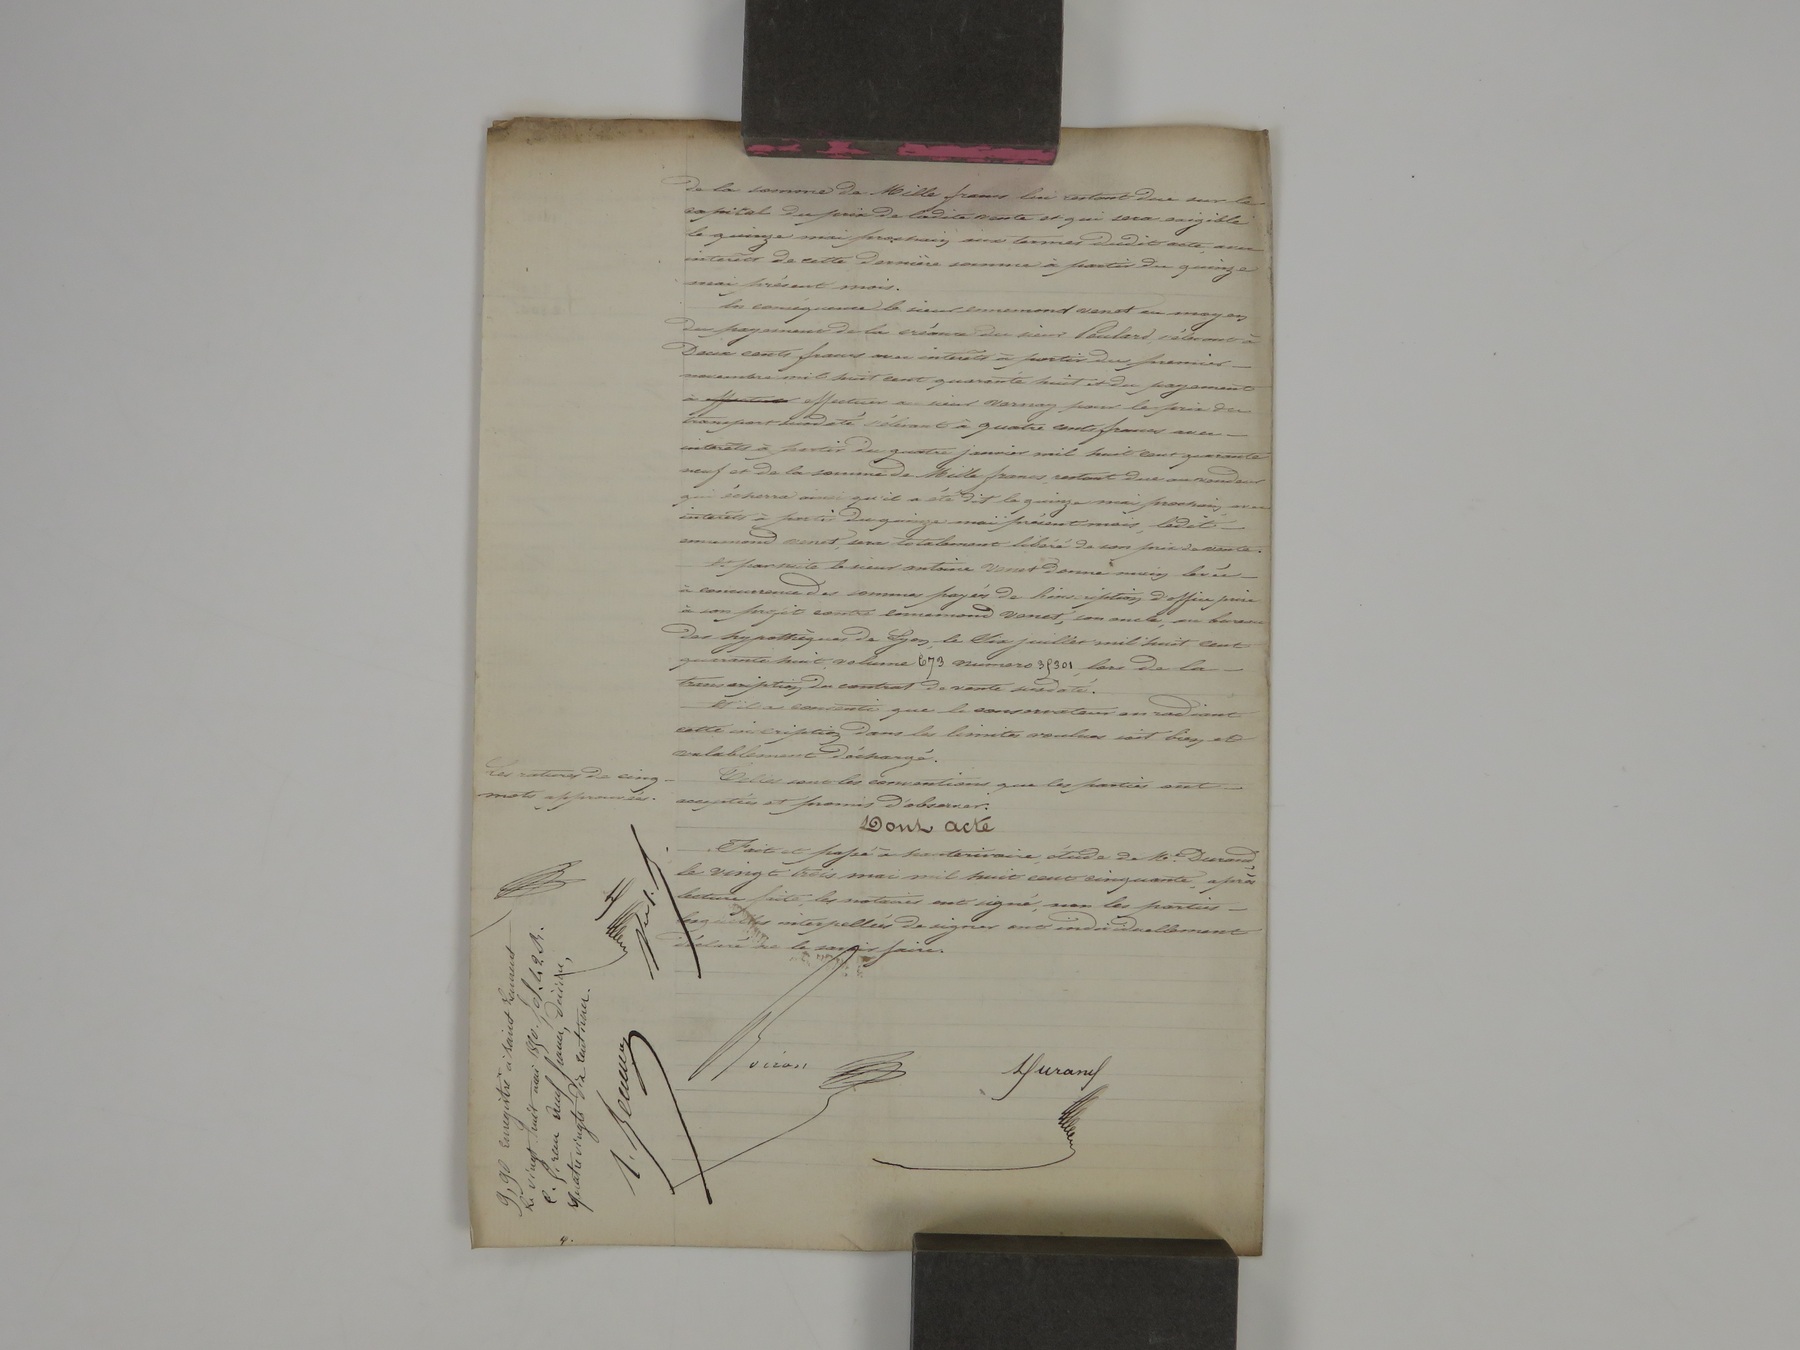 de la somme de Mille francs lui restant due sur le
capital du prix de ladite vente et qui sera exigible
le quinze mai prochain aux termes dudit acte, avec
intérêts de cette dernière somme à partir du quinze
mai présent mois.
En conséquence le sieur ennemond venet au moyen
du payement de la créance du sieur Peulard, s'élevant à
Deux cents francs avec intérêts à partir du premier
novembre mil huit cent quarante huit et du payement
à effectuer au sieur varnay pour le prix du
transport susdaté s'élevant à quatre cents francs avec
intérêts à partir du quatre janvier mil huit cent quarante
neuf et de la somme de Mille francs, restant due au vendeur
qui écherra ainsi qu'il a été dit le quinze mai prochain, avec
intérêts à partir du quinze mai présent mois, ledit
ennemond venet, sera totalement libéré de son prix de vente.
Et par suite le sieur antoine Venet donne main levée
à concurrence des sommes payées de l'inscription d'office prise
à son profit contre ennemond Venet, son oncle, au bureau
des hypothèques de Lyon, le Dix juillet mil huit cent
quarante huit, volume 673 numero 35301, lors de la
transcription du contrat de vente susdaté.
Et il a consenti que le conservateur en radiant
cette inscription dans les limites voulues soit bien et
valablement déchargé.
Telles sont les conventions que les parties ont
acceptées et promis d'observer.
Dont acte
Fait et passé à , étude de Me. Durand,
le vingt trois mai mil huit cent cinquante, après
lecture faite, les notaires ont signé, non les parties
lesquelles interpellées de signer ont individuellement
déclaré ne le savoir faire.
Les ratures de cinq
mots approuvées.
Durand
9,90 Enregistré à Saint Laurent
le vingt huit mai 1850. fol. 42 R.
C. Reçu neuf francs, décime,
quatre vingt dix centimes.
4.